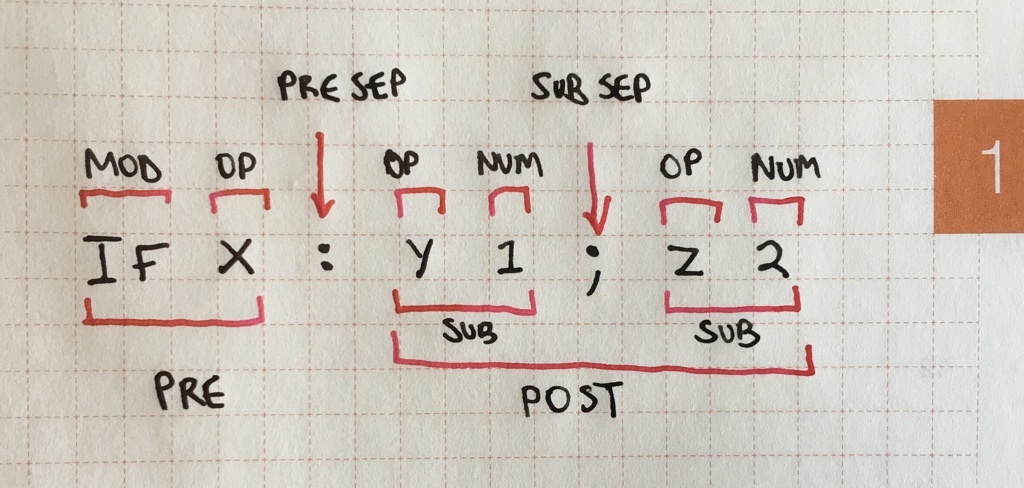 PRE SEP SUB SEP
MOD OP OP NUM OP NUM
1
IF X : Y 1 ; Z 2
SUB SUB
PRE POST